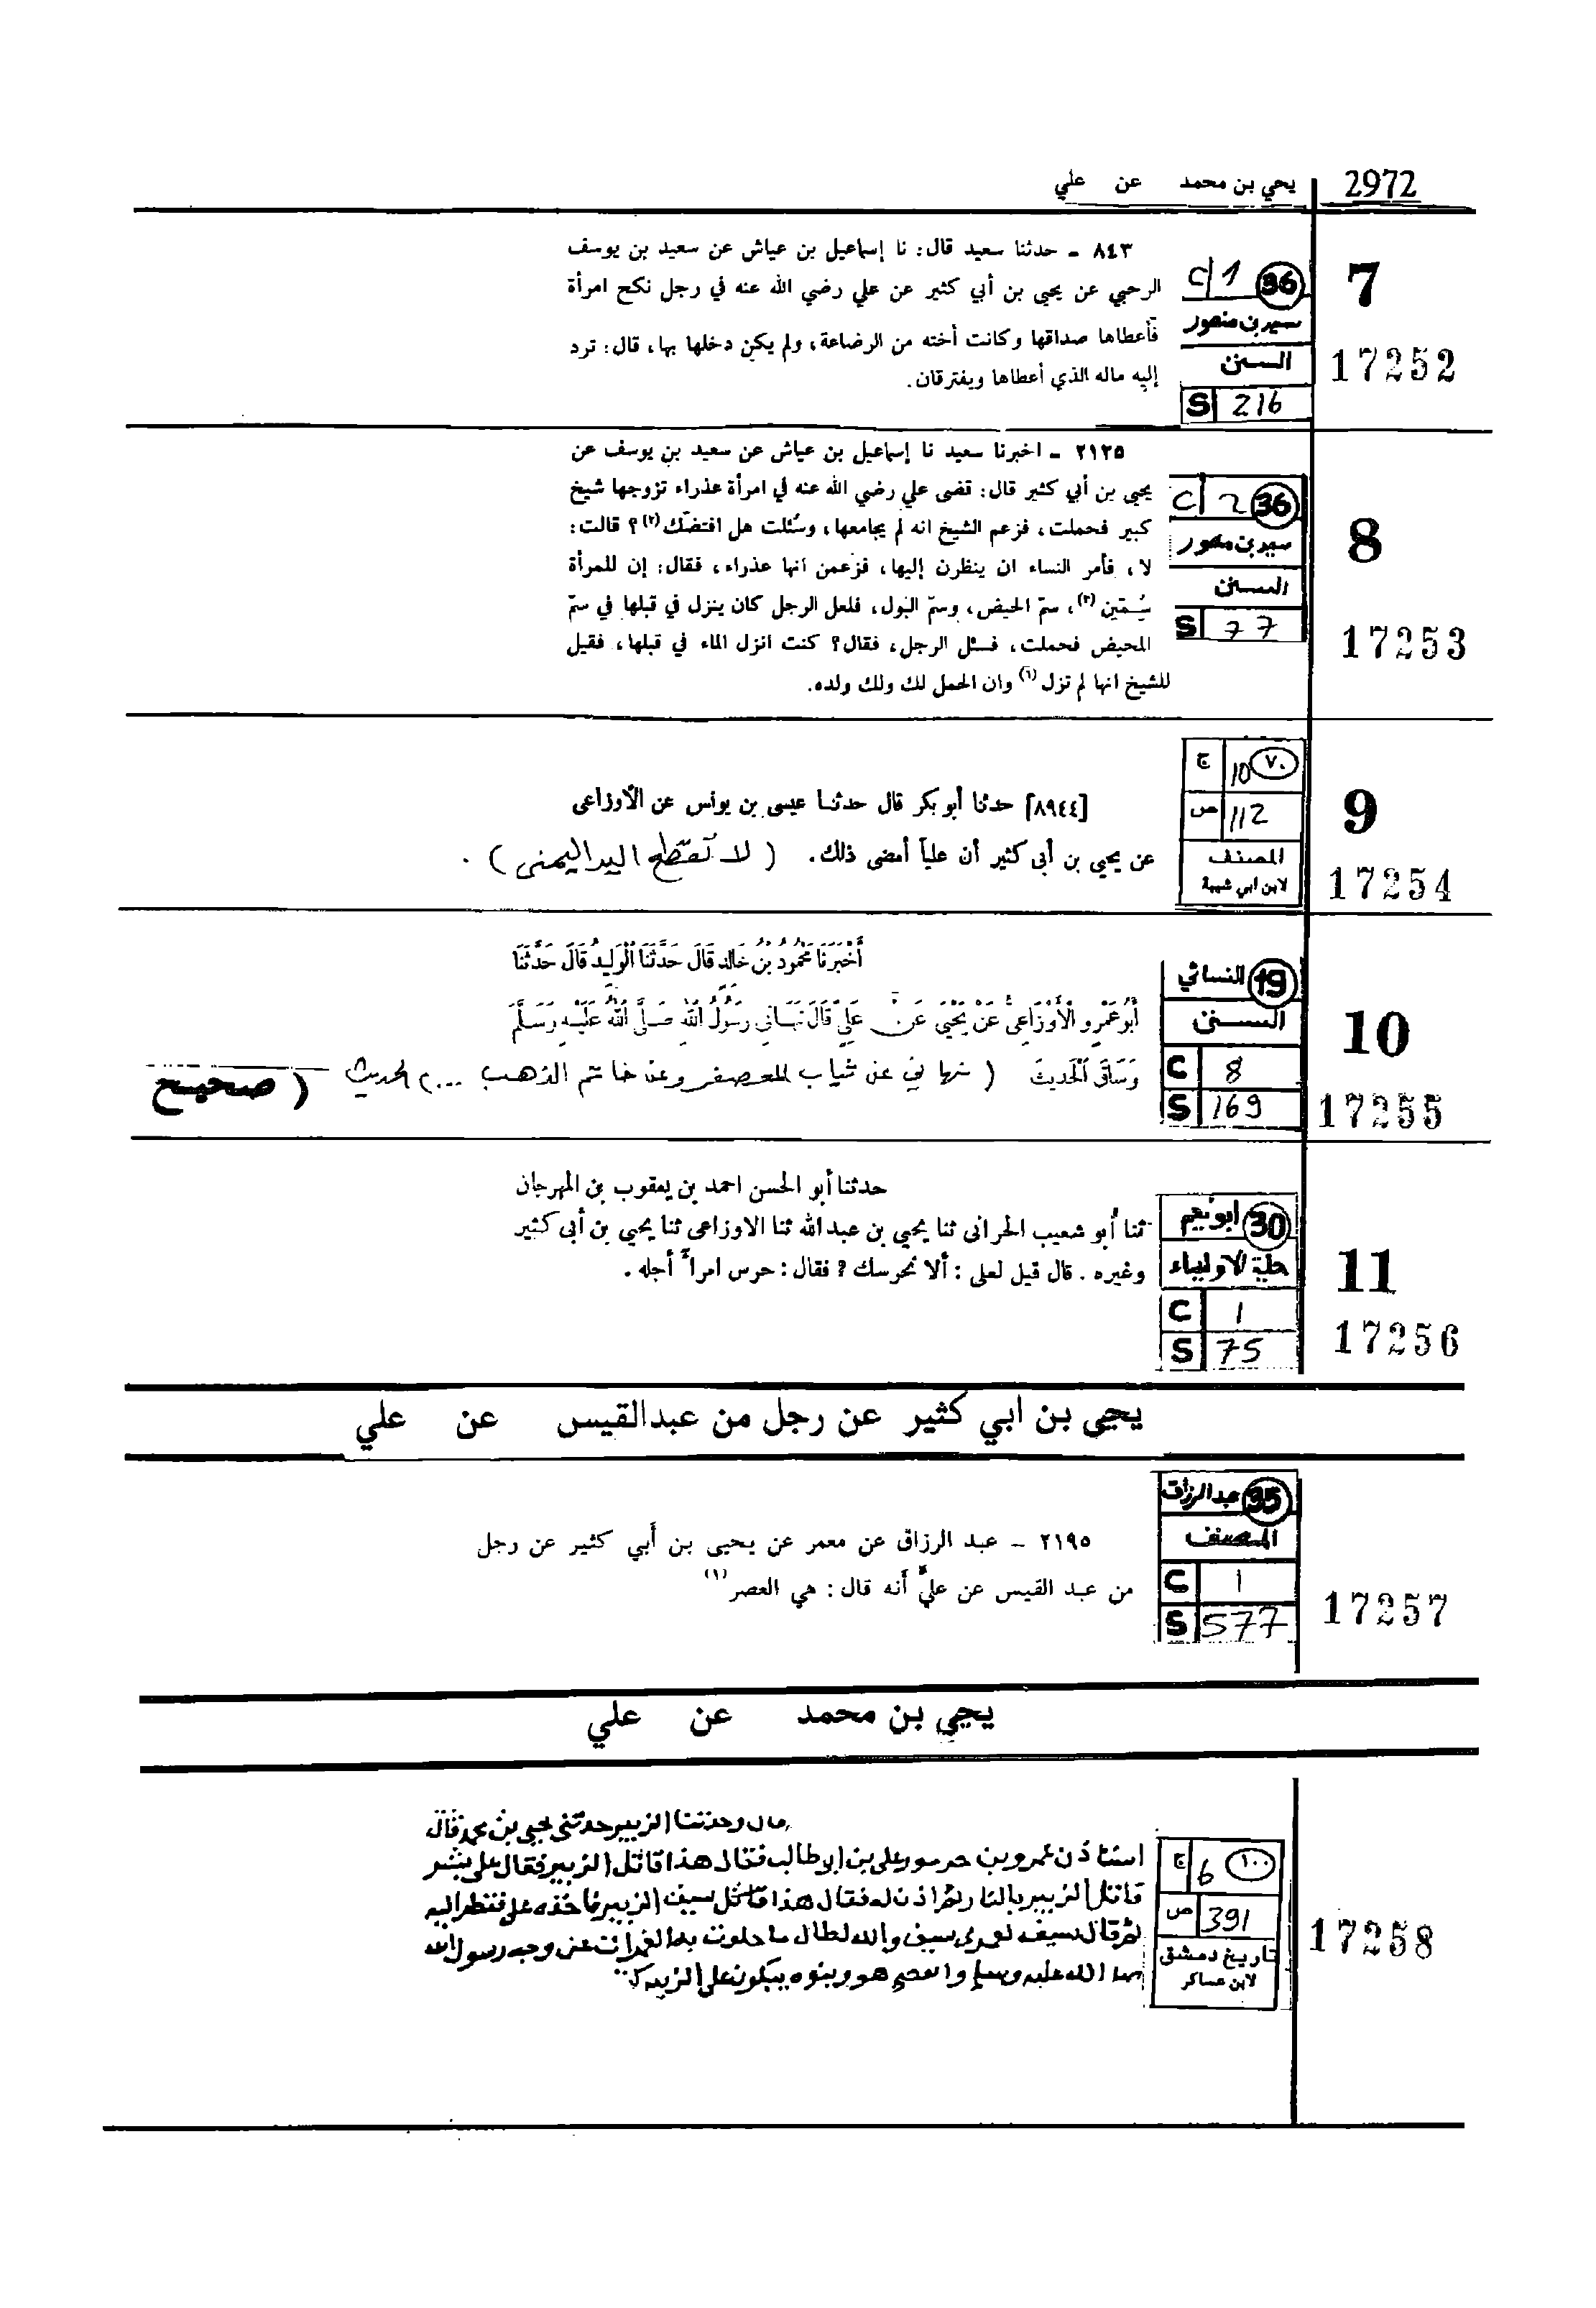 2972 يحي بن محمد عن علي
7
17252
36 C 1
سعيد بن منصور
السنن
S 216
٨٤٣ - حدثنا سعيد قال: نا إسماعيل بن عياش عن سعيد بن يوسف
الرحبي عن يحيى بن أبي كثير عن علي رضي الله عنه في رجل نكح امرأة
فأعطاها صداقها وكانت أخته من الرضاعة، ولم يكن دخلها بها، قال: ترد
إليه ماله الذي أعطاها ويفترقان.
8
17253
36 C 2
سعيد بن منصور
السنن
S 77
٢١٢٥ - اخبرنا سعيد نا إسماعيل بن عياش عن سعيد بن يوسف عن
يحيى بن أبي كثير قال: قضى علي رضي الله عنه في امرأة عذراء تزوجها شيخ
كبير فحملت، فزعم الشيخ انه لم يجامعها، وسُئلت هل افتضّك(٢)؟ قالت:
لا، فأمر النساء ان ينظرن إليها، فزعمن انها عذراء، فقال: إن للمرأة
سُمّين(٣)، سمّ الحيض، وسمّ البول، فلعل الرجل كان ينزل في قبلها في سمّ
المحيض فحملت، فسئل الرجل، فقال؟ كنت انزل الماء في قبلها، فقيل
للشيخ انها لم تزل(٦) وان الحمل لك ولك ولده.
9
17254
٧٠ ج 10
ص 112
المصنف
لابن ابي شيبة
[٨٩٤٤] حدثنا أبو بكر قال حدثنا عيسى بن يونس عن الأوزاعى
عن يحيي بن أبى كثير أن علياً أمضى ذلك. ( لا تقطع اليد اليمنى ) .
10
17255
19 النسائي
السنن
C 8
S 169
أَخْبَرَنَا مَحْمُودُ بْنُ خَالِدٍ قَالَ حَدَّثَنَا الْوَلِيدُ قَالَ حَدَّثَنَا
أَبُو عَمْرٍو الْأَوْزَاعِىُّ عَنْ يَحْيَى عَنْ عَلِيٍّ قَالَ نَهَانِى رَسُولُ اللهِ صَلَّى اللهُ عَلَيْهِ وَسَلَّمَ
وَسَاقَ الْحَدِيثَ ( نهاني عن ثياب المعصفر وعن خاتم الذهب ...) الحديث ( صحيح
11
17256
30 ابو نعيم
حلية الاولياء
C 1
S 75
حدثنا أبو الحسن احمد بن يعقوب بن المهرجان
ثنا أبو شعيب الحرانى ثنا يحيي بن عبد الله ثنا الاوزاعى ثنا يحيي بن أبى كثير
وغيره . قال قيل لعلى : ألا نحرسك ? فقال : حرس امرأً أجله .
يحيى بن ابي كثير عن رجل من عبدالقيس عن علي
17257
35 عبد الرزاق
المصنف
C 1
S 577
٢١٩٥ - عبد الرزاق عن معمر عن يحيى بن أبي كثير عن رجل
من عبد القيس عن عليٍّ أنه قال : هي العصر(١)
يحيى بن محمد عن علي
17258
١٠٠ ج 6
ص 391
تاريخ دمشق
لابن عساكر
قال وحدثنا الزبير حدثني يحيى بن محمد قال
استاذن عمرو بن جرموز على بن ابي طالب فقال هذا قاتل الزبير فقال على بشر
قاتل الزبير بالنار ثم اذن له فقال هذا سيف الزبير فاخذه على فنظر اليه
ثم قال سيف لعمري سيف والله لطال ما جلوت به الغمرات عن وجه رسول الله
صلى الله عليه وسلم هو وبنوه يبكون على الزبير